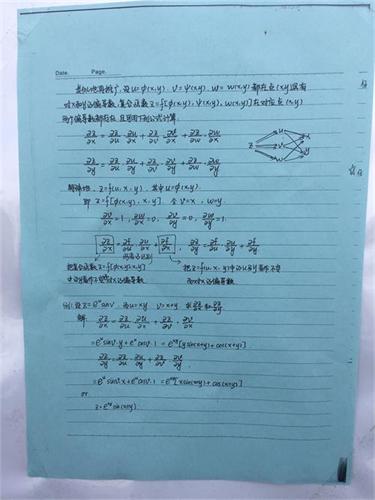 Date. Page.
类似地再推广, 设u=φ(x,y). v=ψ(x,y). w=w(x,y)都在点(x,y)具有
对x和y的偏导数, 复合函数z=f[φ(x,y), ψ(x,y), w(x,y)]在对应点(x,y)
两个偏导数都存在 且可用下列公式计算.
∂z/∂x = ∂z/∂u · ∂u/∂x + ∂z/∂v · ∂v/∂x + ∂z/∂w · ∂w/∂x
z u v w x y
∂z/∂y = ∂z/∂u · ∂u/∂y + ∂z/∂v · ∂v/∂y + ∂z/∂w · ∂w/∂y
特殊地, z=f(u, x, y) 其中u=φ(x,y).
即 z=f[φ(x,y), x, y] 令v=x, w=y.
∂v/∂x = 1, ∂w/∂x = 0, ∂v/∂y = 0, ∂w/∂y = 1.
∂z/∂x = ∂f/∂u · ∂u/∂x + ∂f/∂x, ∂z/∂y = ∂f/∂u · ∂u/∂y + ∂f/∂y
两者的区别
把复合函数z=f[φ(x,y),x,y] 把z=f(u,x,y)中的u及y看作不变
中的y看作不变而对x的偏导数 而对x的偏导数
例: 设z=e^u sinv. 而u=xy. v=x+y. 求∂z/∂x和∂z/∂y.
解 ∂z/∂x = ∂z/∂u · ∂u/∂x + ∂z/∂v · ∂v/∂x
=e^u sinv·y+e^u cosv·1 = e^xy[y sin(x+y)+cos(x+y)]
∂z/∂y = ∂z/∂u · ∂u/∂y + ∂z/∂v · ∂v/∂y
=e^u sinv·x+e^u cosv·1 = e^xy[x sin(x+y)+cos(x+y)]
or
z=e^xy sin(x+y)